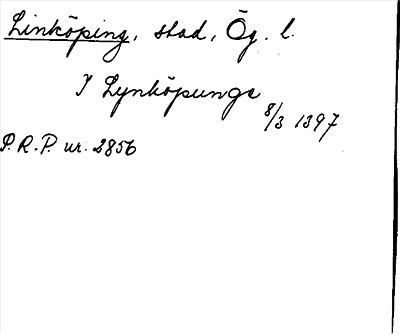 Linköping, stad, Ög. l.
I Lynköpunge
8/3 1397
P.R.P. nr. 2856